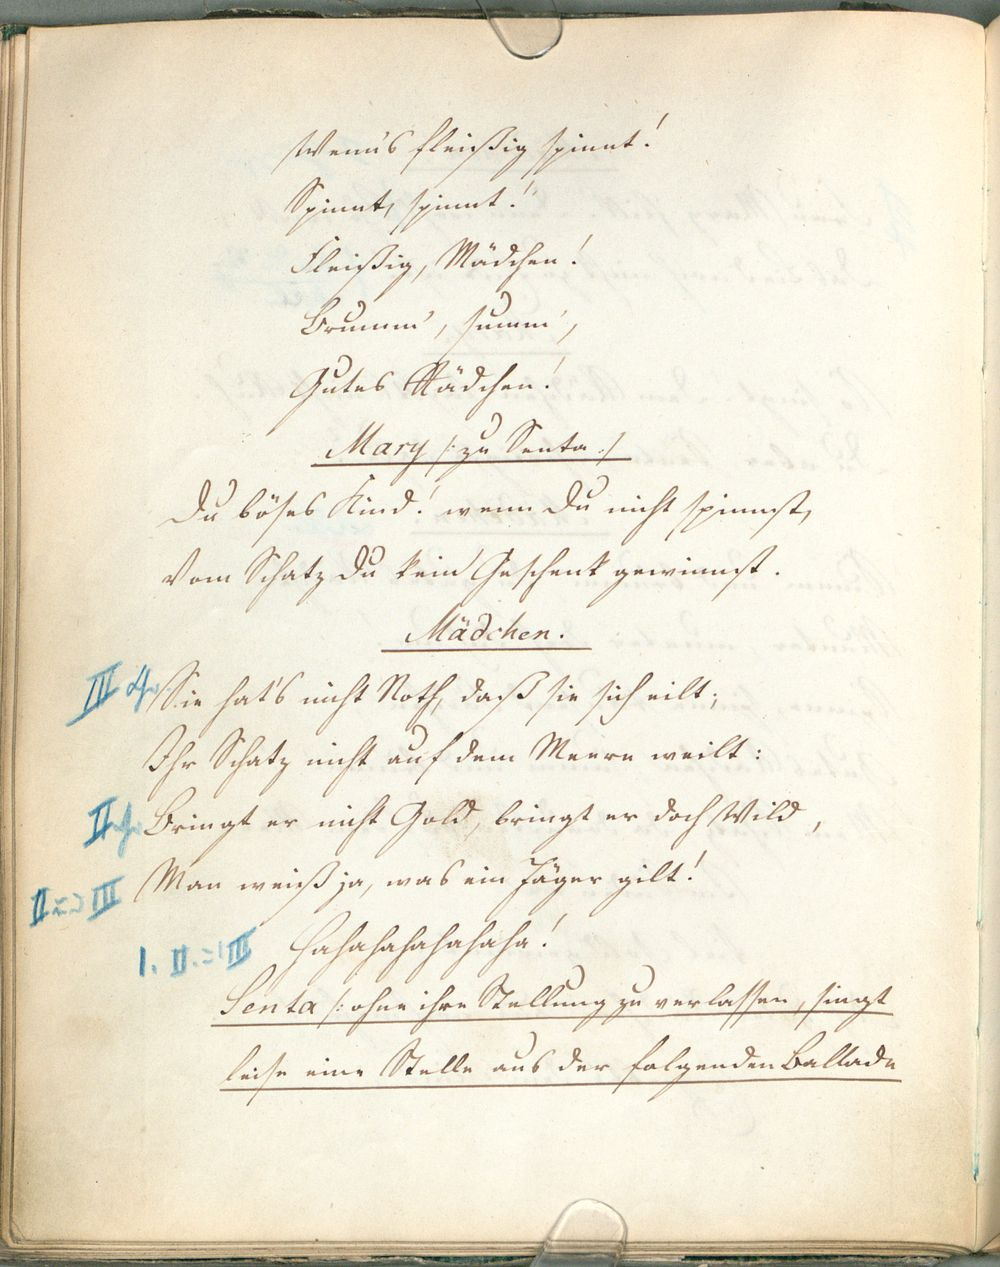 Wenn's fleißig spinnt!
Spinnt, spinnt!
Fleißig, Mädchen!
Brumm', summ',
Gutes Rädchen!
Mary /: zu Senta :/
Du böses Kind! wenn Du nicht spinnst,
Vom Schatz Du kein Geschenk gewinnst.
Mädchen.
III Sie hat's nicht Noth, daß sie sich eilt;
Ihr Schatz nicht auf dem Meere weilt:
II Bringt er nicht Gold, bringt er doch Wild,
II III Man weiß ja, was ein Jäger gilt!
I. II. III Hahahahahahaha!
Senta /: ohne ihre Stellung zu verlassen, singt
leise eine Stelle aus der folgenden Ballade